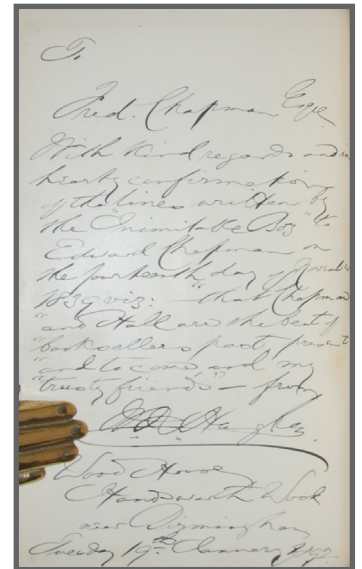 To
Fred. Chapman Esqre.
With Kind regards and in
hearty confirmation
of the lines written by
the "Inimitable Boz" to
Edward Chapman on
the fourteenth day of November
1839 viz: "that Chapman
"and Hall are the best of
"booksellers past, present
"and to come, and my
"trusty friends" — from
Hughes.
Wood House
Handsworth Wood
near Birmingham
Tuesday 19th January